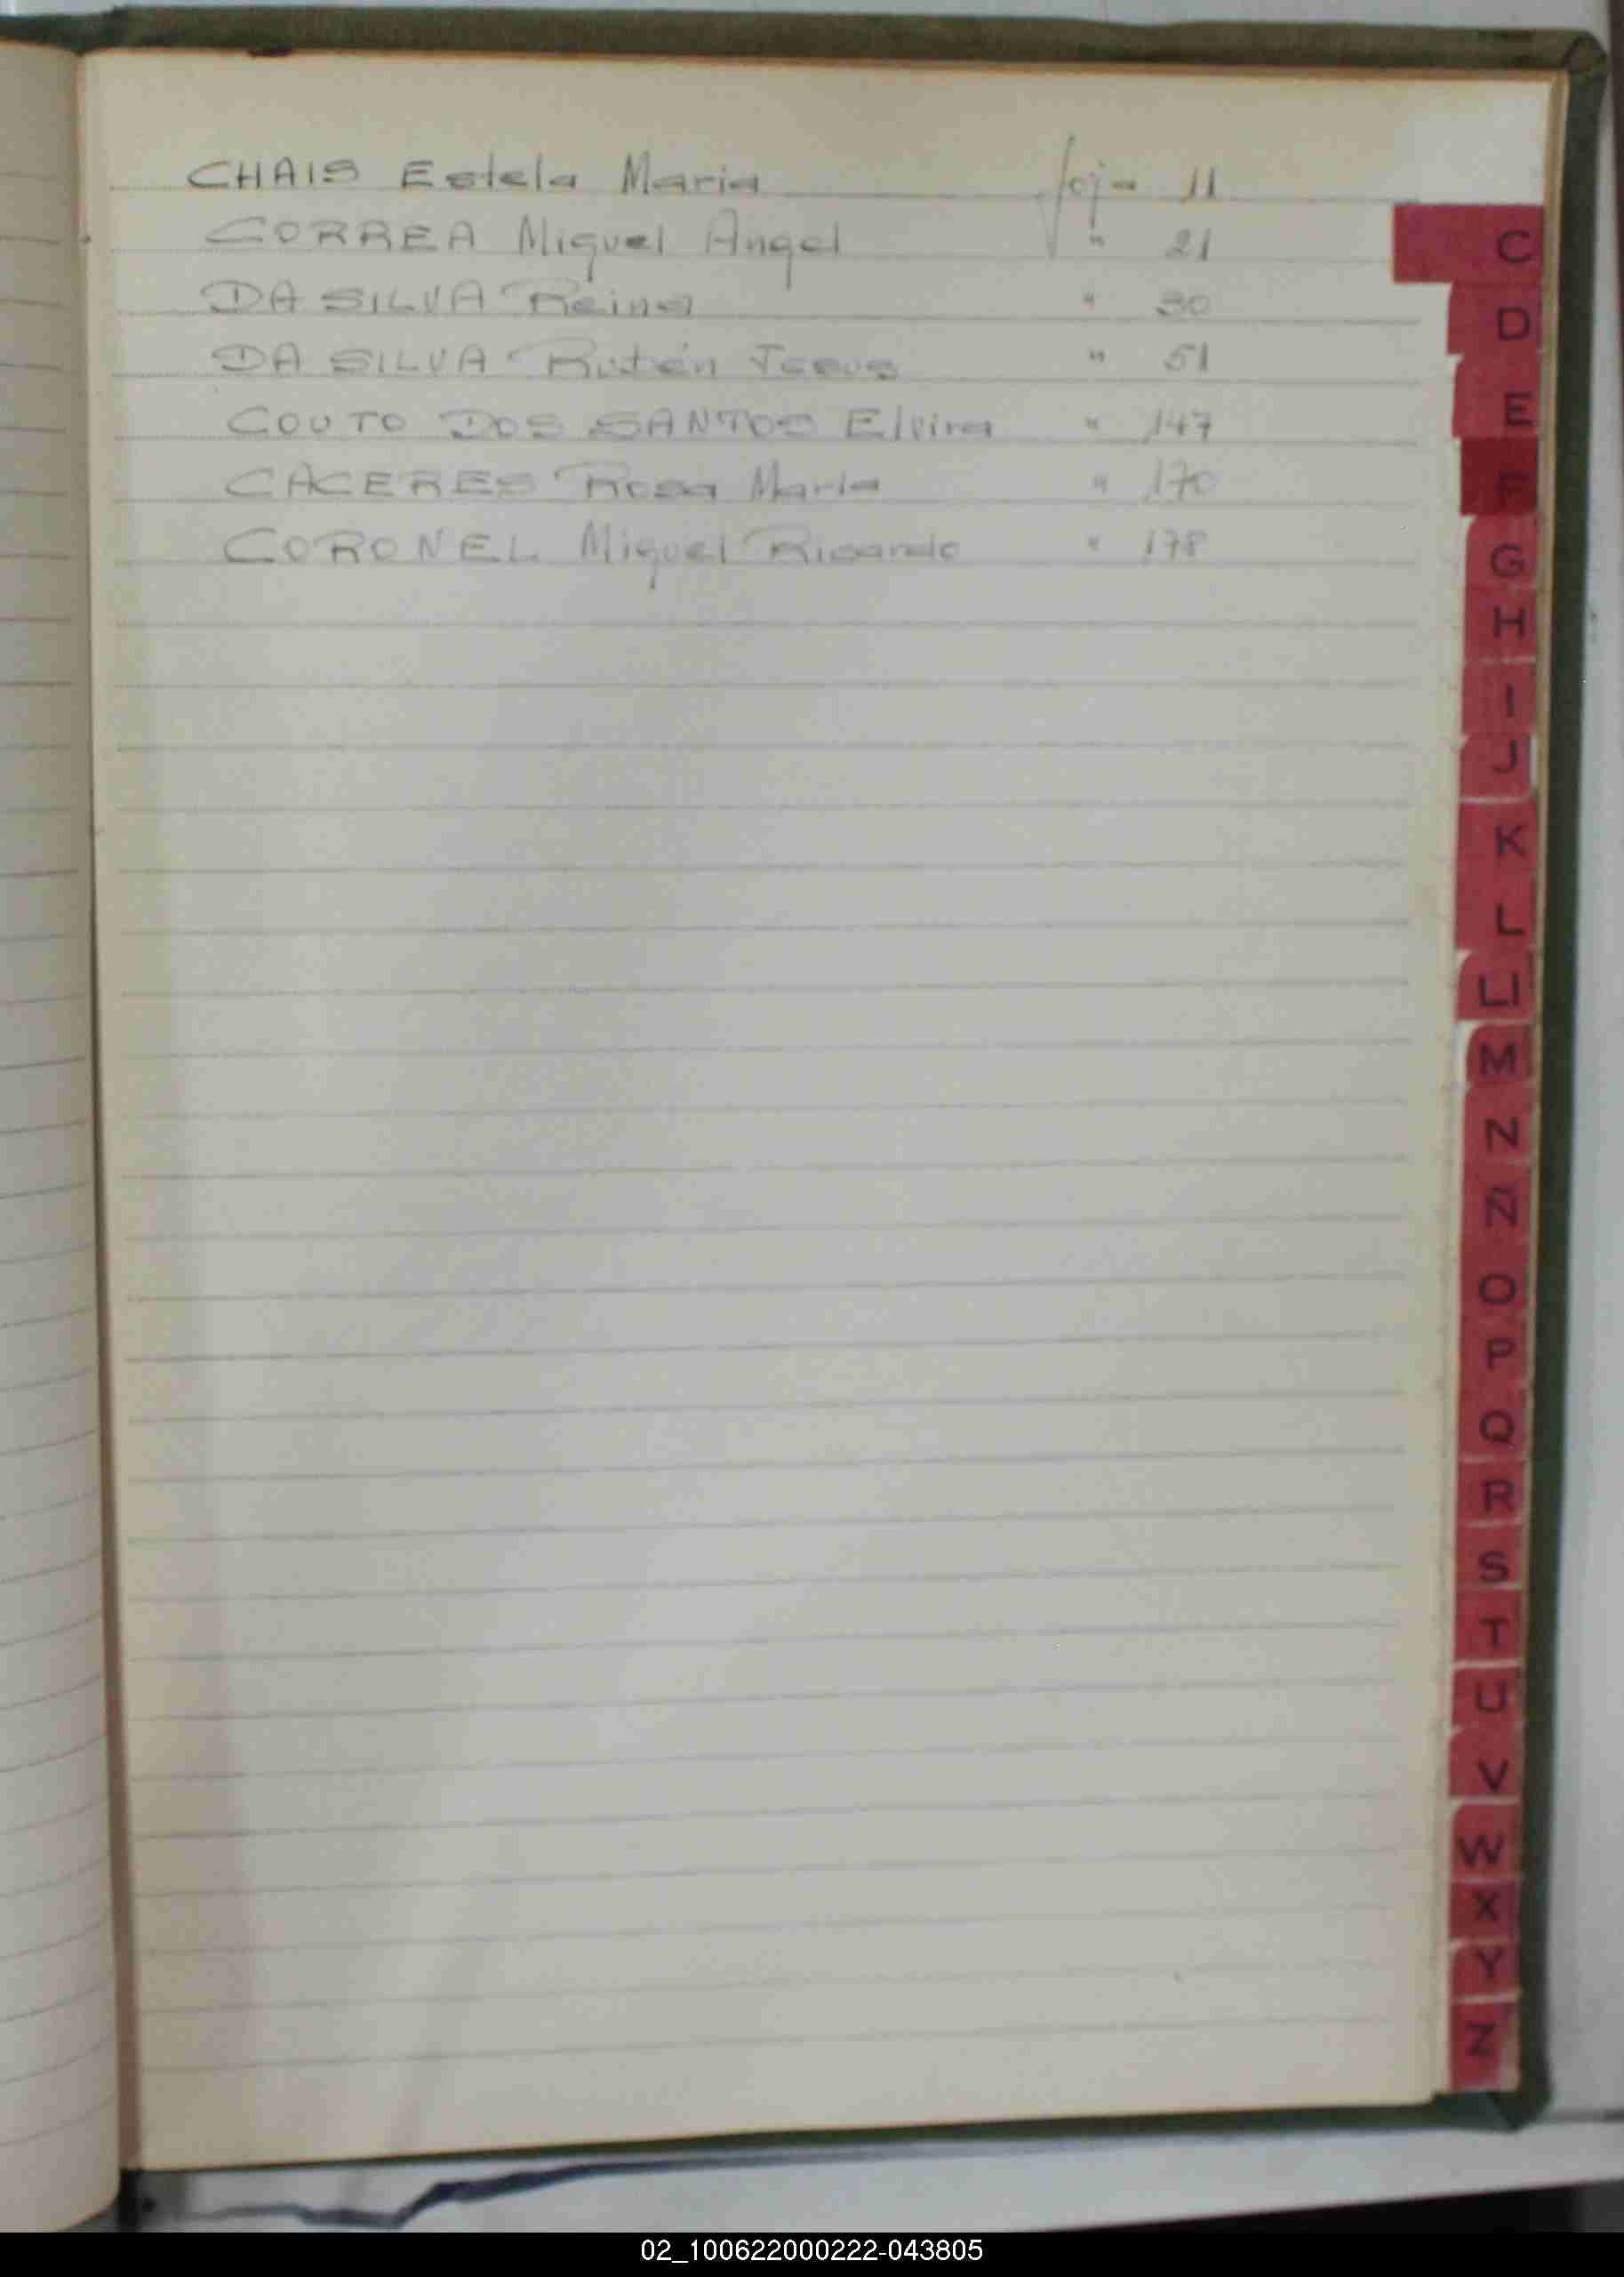 CHAIS Estela Maria foja 11
CORREA Miguel Angel " 21
DA SILVA Reina " 30
DA SILVA Rubén Jesus " 51
COUTO DOS SANTOS Elvira " 147
CACERES Rosa Maria " 170
CORONEL Miguel Ricardo " 178
C
D
E
F
G
H
I
J
K
L
LL
M
N
Ñ
O
P
Q
R
S
T
U
V
W
X
Y
Z
02_100622000222-043805